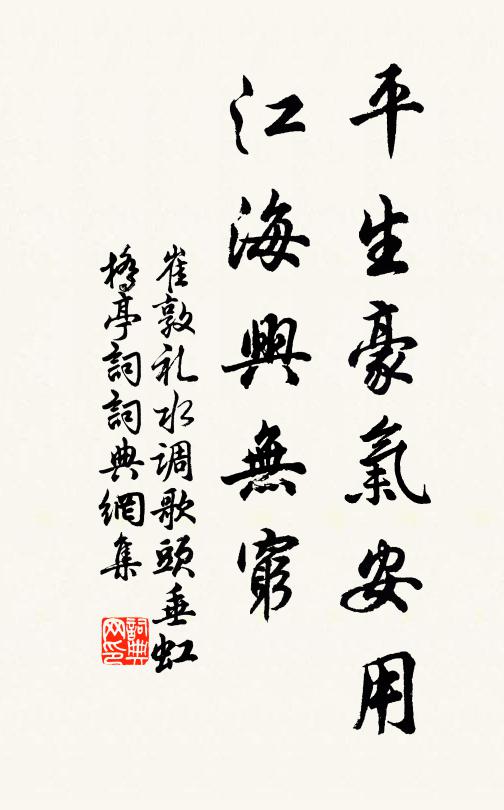 平生豪氣安用
江海興無窮
崔敦礼水调歌頭垂虹
橋亭詞詞典網集
詞典
网印